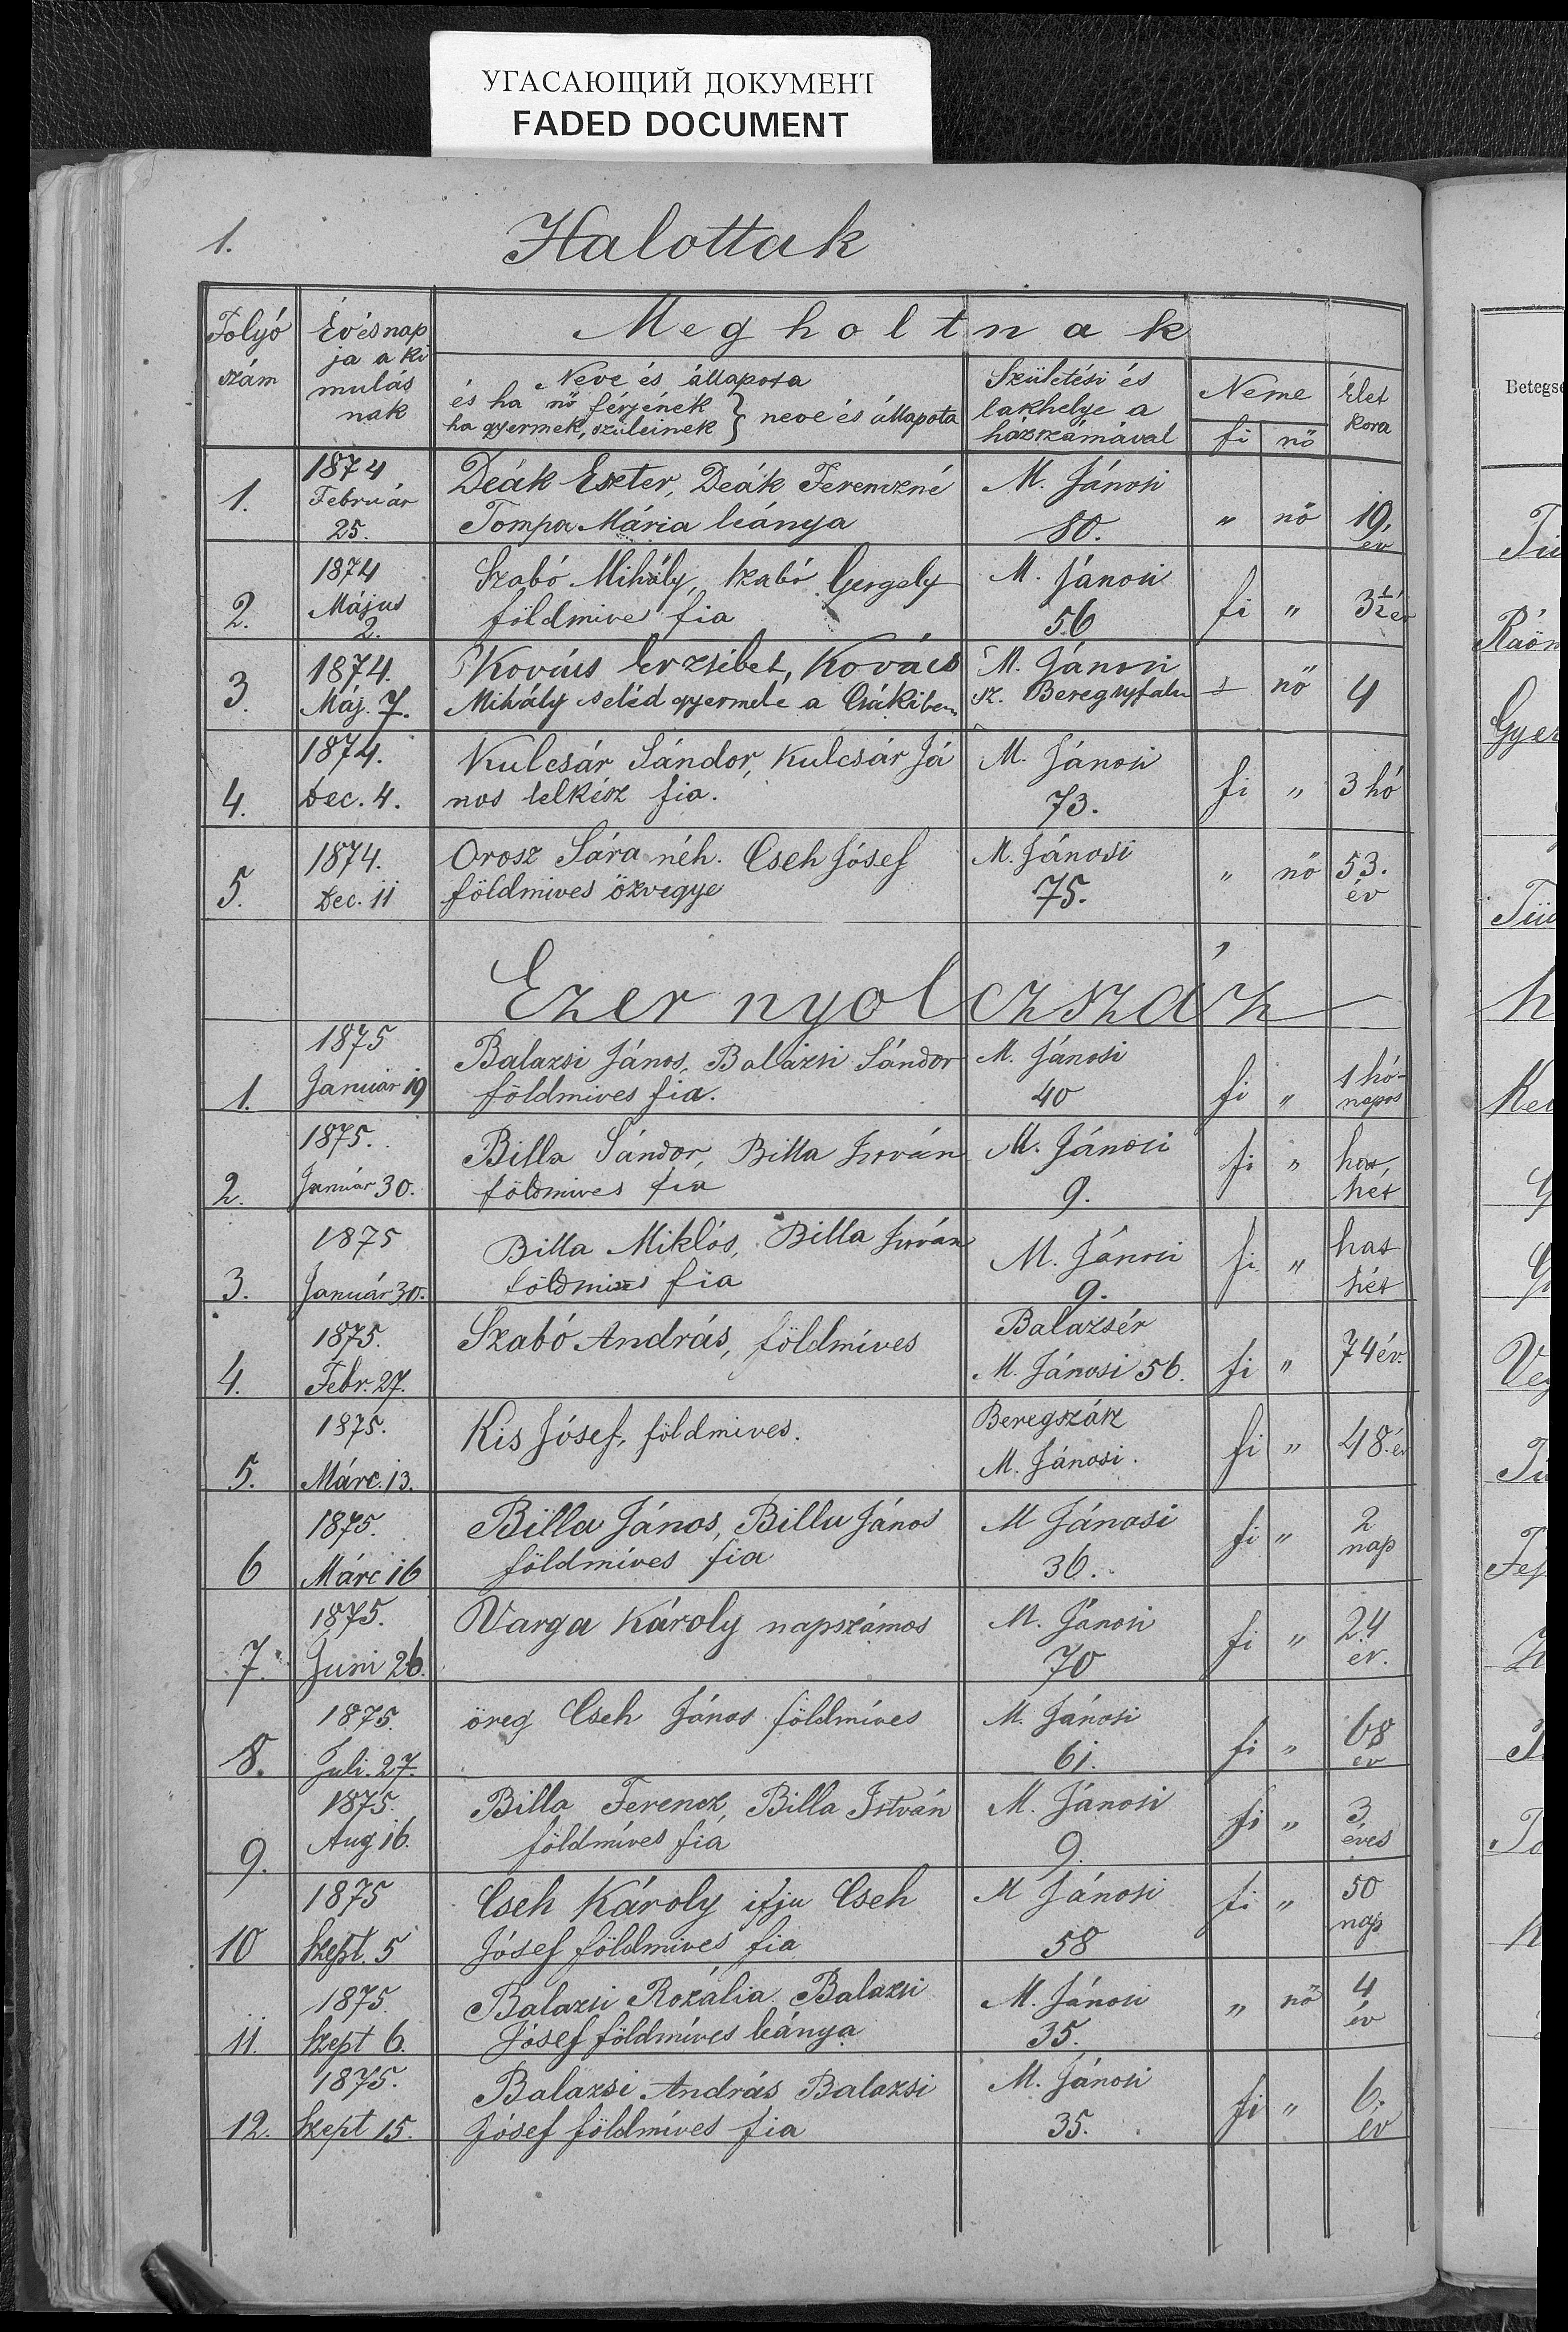 УГАСАЮЩИЙ ДОКУМЕНТ
FADED DOCUMENT
1. Halottak
Folyó szám
Év és nap
ja a ki
mulás
nak
Megholtnak
Neve és állapota
és ha nő férjének
ha gyermek, szüleinek } neve és állapota
Születési és
lakhelye a
házszámával
Neme
fi nő
Élet
kora
1. 1874 Február 25. Deák Eszter, Deák Ferenczné M. Jánosi
Tompa Mária leánya 80. " nő 19. év
2. 1874 Május 2. Szabó Mihály, Szabó Gergely M. Jánosi
földmives fia 56 fi " 3½ év
3. 1874. Máj. 7. Kovács Erzsébet, Kovács M. Jánosi
Mihály seléd gyermeke a Csákiben sz. Beregujfalu nő 4
4. 1874. Dec. 4. Kulcsár Sándor, Kulcsár Já M. Jánosi
nos lelkész fia. 73. fi " 3 hó
5. 1874. Dec. 11 Orosz Sára néh. Cseh Jósef M. Jánosi
földmives özvegye 75. " nő 53. év
Ezer nyolczszáz
1. 1875 Január 19 Balazsi János, Balázsi Sándor M. Jánosi
földmives fia. 40 fi " 1 hó-
napos
2. 1875. Január 30. Billa Sándor, Billa István M. Jánosi
földmives fia 9. fi " hat, hét
3. 1875 Január 30. Billa Miklós, Billa István M. Jánosi
földmives fia 9. fi " hat hét
4. 1875. Febr. 27. Szabó András, földmíves Balazsér
M. Jánosi 56. fi " 74 év.
5. 1875. Márc. 13. Kis Jósef, földmives. Beregszász
M. Jánosi. fi " 48. év
6 1875. Márc 16 Billa János, Billa János M Jánosi
földmíves fia 36. fi " 2 nap
7. 1875. Juni 26. Varga Károly napszámos M. Jánosi
70 fi " 24 év.
8. 1875. Juli. 27. öreg Cseh János földmíves M. Jánosi
61. fi " 68 év
9. 1875. Aug 16. Billa Ferencz, Billa István M. Jánosi
földmíves fia 9. fi " 3 éves
10 1875 Szept. 5 Cseh Károly ifju Cseh M Jánosi
Jósef földmives fia 58 fi " 50 nap
11. 1875. Szept 6. Balazsi Rozália Balazsi M. Jánosi
Jósef földmíves leánya 35. " nő 4 év
12. 1875. Szept 15. Balazsi András Balazsi M. Jánosi
Jósef földmíves fia 35. fi " 6. év